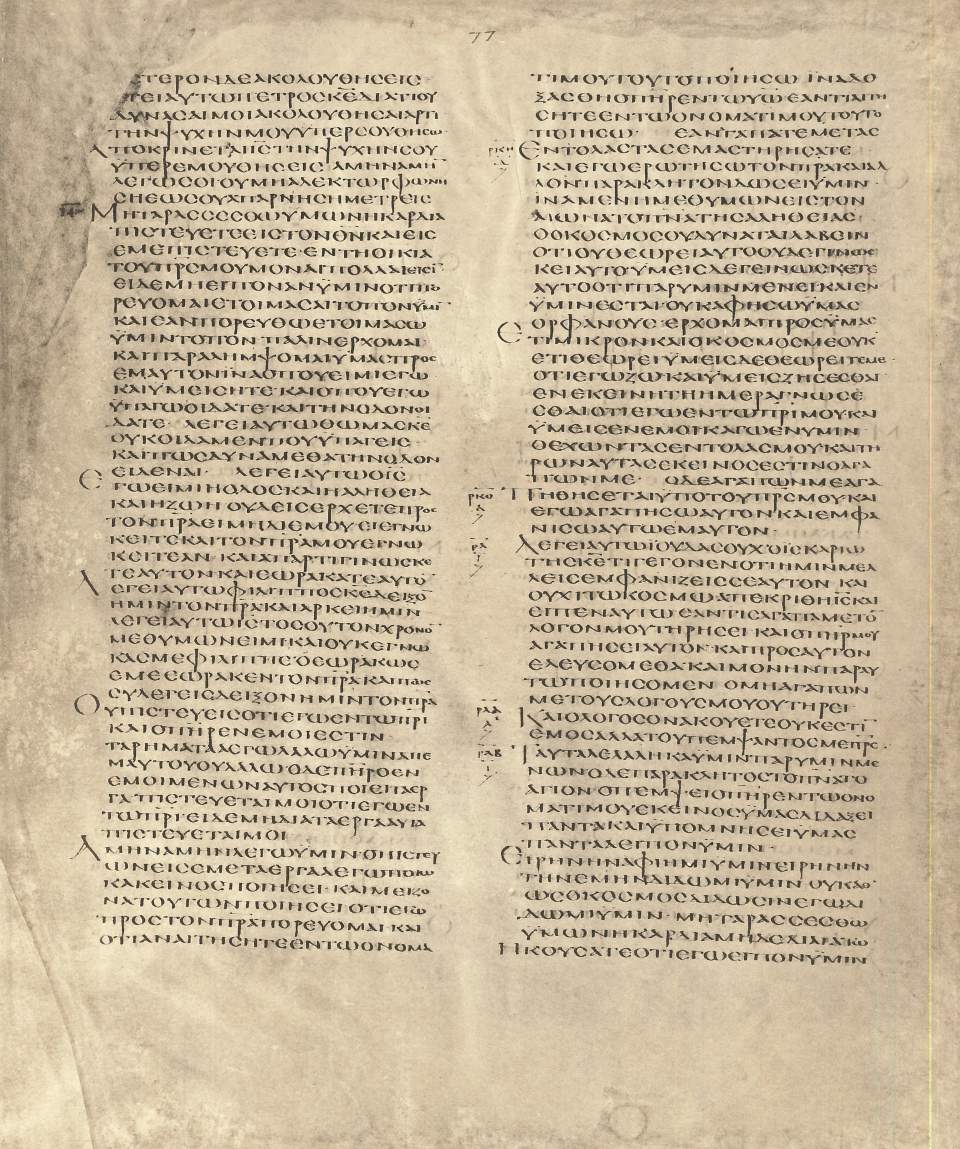 77
ϹΤΕΡΟΝΔΕΑΚΟΛΟΥΘΗϹΕΙϹ
ΛΕΓΕΙΑΥΤΩΠΕΤΡΟϹΚΕΔΙΑΤΙΟΥ
ΔΥΝΑΜΑΙϹΟΙΑΚΟΛΟΥΘΗϹΑΙΑΡΤΙ
ΤΗΝΨΥΧΗΝΜΟΥΥΠΕΡϹΟΥΘΗϹΩ
ΑΠΟΚΡΙΝΕΤΑΙΙϹΤΗΝΨΥΧΗΝϹΟΥ
ΥΠΕΡΕΜΟΥΘΗϹΕΙϹ ΑΜΗΝΑΜΗ
ΛΕΓΩϹΟΙΟΥΜΗΑΛΕΚΤΩΡΦΩΝΗ
ϹΗΕΩϹΟΥΑΠΑΡΝΗϹΗΜΕΤΡΕΙϹ
ΜΗΤΑΡΑϹϹΕϹΘΩΫΜΩΝΗΚΑΡΔΙΑ
ΠΙϹΤΕΥΕΤΕΕΙϹΤΟΝΘΝΚΑΙΕΙϹ
ΕΜΕΠΙϹΤΕΥΕΤΕ ΕΝΤΗΟΙΚΙΑ
ΤΟΥΠΡϹΜΟΥΜΟΝΑΙΠΟΛΛΑΙΕΙϹΙ
ΕΙΔΕΜΗΕΙΠΟΝΑΝΫΜΙΝΟΤΙΠΟ
ΡΕΥΟΜΑΙΕΤΟΙΜΑϹΑΙΤΟΠΟΝΫΜΙ
ΚΑΙΕΑΝΠΟΡΕΥΘΩΕΤΟΙΜΑϹΩ
ΫΜΙΝΤΟΠΟΝ ΠΑΛΙΝΕΡΧΟΜΑΙ
ΚΑΙΠΑΡΑΛΗΜΨΟΜΑΙΫΜΑϹΠΡΟϹ
ΕΜΑΥΤΟΝΙΝΑΟΠΟΥΕΙΜΙΕΓΩ
ΚΑΙΫΜΕΙϹΗΤΕ ΚΑΙΟΠΟΥΕΓΩ
ΫΠΑΓΩΟΙΔΑΤΕ ΚΑΙΤΗΝΟΔΟΝΟΙ
ΔΑΤΕ ΛΕΓΕΙΑΥΤΩΘΩΜΑϹΚΕ
ΟΥΚΟΙΔΑΜΕΝΠΟΥΫΠΑΓΕΙϹ
ΚΑΙΠΩϹΔΥΝΑΜΕΘΑΤΗΝΟΔΟΝ
ΕΙΔΕΝΑΙ ΛΕΓΕΙΑΥΤΩΟΙϹ
ΕΓΩΕΙΜΙΗΟΔΟϹΚΑΙΗΑΛΗΘΕΙΑ
ΚΑΙΗΖΩΗ ΟΥΔΕΙϹΕΡΧΕΤΕΠΡΟϹ
ΤΟΝΠΡΑΕΙΜΗΔΙΕΜΟΥ ΕΙΕΓΝΩ
ΚΕΙΤΕΚΑΙΤΟΝΠΡΑΜΟΥΕΓΝΩ
ΚΕΙΤΕΑΝ ΚΑΙΑΠΑΡΤΙΓΙΝΩϹΚΕ
ΤΕΑΥΤΟΝ ΚΑΙΕΩΡΑΚΑΤΕΑΥΤΟ
ΛΕΓΕΙΑΥΤΩΦΙΛΙΠΠΟϹΚΕΔΕΙΞΟ
ΗΜΙΝΤΟΝΠΡΑΚΑΙΑΡΚΕΙΗΜΙΝ
ΛΕΓΕΙΑΥΤΩΙϹΤΟϹΟΥΤΟΝΧΡΟΝΟ
ΜΕΘΥΜΩΝΕΙΜΗΚΑΙΟΥΚΕΓΝΩ
ΚΑϹΜΕΦΙΛΙΠΠΕ ΟΕΩΡΑΚΩϹ
ΕΜΕΕΩΡΑΚΕΝΤΟΝΠΡΑ ΚΑΙΠΩϹ
ϹΥΛΕΓΕΙϹΔΕΙΞΟΝΗΜΙΝΤΟΝΠΡΑ
ΟΥΠΙϹΤΕΥΕΙϹΟΤΙΕΓΩΕΝΤΩΠΡΙ
ΚΑΙΟΠΗΡΕΝΕΜΟΙΕϹΤΙΝ
ΤΑΡΗΜΑΤΑΑΕΓΩΛΑΛΩΫΜΙΝΑΠΕ
ΜΑΥΤΟΥΟΥΛΑΛΩ ΟΔΕΠΗΡΟΕΝ
ΕΜΟΙΜΕΝΩΝΑΥΤΟϹΠΟΙΕΙΤΑΕΡ
ΓΑ ΠΙϹΤΕΥΕΤΑΙΜΟΙΟΤΙΕΓΩΕΝ
ΤΩΠΡΙ ΕΙΔΕΜΗΔΙΑΤΑΕΡΓΑΑΥΤΑ
ΠΙϹΤΕΥΕΤΑΙΜΟΙ
ΑΜΗΝΑΜΗΝΛΕΓΩΫΜΙΝ ΟΠΙϹΤΕΥ
ΩΝΕΙϹΕΜΕΤΑΕΡΓΑΑΕΓΩΠΟΙΩ
ΚΑΚΕΙΝΟϹΠΟΙΗϹΕΙ ΚΑΙΜΕΙΖΟ
ΝΑΤΟΥΤΩΝΠΟΙΗϹΕΙΟΤΙΕΓΩ
ΠΡΟϹΤΟΝΠΡΑΠΟΡΕΥΟΜΑΙ ΚΑΙ
ΟΤΙΑΝΑΙΤΗϹΗΤΕΕΝΤΩΟΝΟΜΑ
ΤΙΜΟΥΤΟΥΤΟΠΟΙΗϹΩ ΙΝΑΔΟ
ΞΑϹΘΗΟΠΗΡΕΝΤΩΥΩ ΕΑΝΤΙΑΙΤΗ
ϹΗΤΕΕΝΤΩΟΝΟΜΑΤΙΜΟΥΤΟΥΤΟ
ΠΟΙΗϹΩ ΕΑΝΑΓΑΠΑΤΕΜΕΤΑϹ
ΡΚΗ ΕΝΤΟΛΑϹΤΑϹΕΜΑϹΤΗΡΗϹΑΤΕ
ΚΑΙΕΓΩΕΡΩΤΗϹΩΤΟΝΠΡΑΚΑΙΑΛ
ΛΟΝΠΑΡΑΚΛΗΤΟΝΔΩϹΕΙΫΜΙΝ
ΙΝΑΜΕΝΗΜΕΘΥΜΩΝΕΙϹΤΟΝ
ΑΙΩΝΑΤΟΠΝΑΤΗϹΑΛΗΘΕΙΑϹ
ΟΟΚΟϹΜΟϹΟΥΔΥΝΑΤΑΙΛΑΒΕΙΝ
ΟΤΙΟΥΘΕΩΡΕΙΑΥΤΟΟΥΔΕΓΙΝΩϹ
ΚΕΙΑΥΤΟΫΜΕΙϹΔΕΓΕΙΝΩϹΚΕΤΕ
ΑΥΤΟΟΤΙΠΑΡΫΜΙΝΜΕΝΕΙΚΑΙΕΝ
ΫΜΙΝΕϹΤΑΙ ΟΥΚΑΦΗϹΩΫΜΑϹ
ΟΡΦΑΝΟΥϹ ΕΡΧΟΜΑΙΠΡΟϹΫΜΑϹ
ΕΤΙΜΙΚΡΟΝΚΑΙΟΚΟϹΜΟϹΜΕΟΥΚ
ΕΤΙΘΕΩΡΕΙΫΜΕΙϹΔΕΘΕΩΡΕΙΤΕΜΕ
ΟΤΙΕΓΩΖΩ ΚΑΙΫΜΕΙϹΖΗϹΕϹΘΑΙ
ΕΝΕΚΕΙΝΗΤΗΗΜΕΡΑΓΝΩϹΕ
ϹΘΑΙΟΤΙΕΓΩΕΝΤΩΠΡΙΜΟΥ ΚΑΙ
ΫΜΕΙϹΕΝΕΜΟΙΚΑΓΩΕΝΥΜΙΝ
ΟΕΧΩΝΤΑϹΕΝΤΟΛΑϹΜΟΥΚΑΙΤΗ
ΡΩΝΑΥΤΑϹΕΚΕΙΝΟϹΕϹΤΙΝΟΑΓΑ
ΠΩΝΜΕ ΟΔΕΑΓΑΠΩΝΜΕΑΓΑ
ΡΚΘ ΠΗΘΗϹΕΤΑΙΫΠΟΤΟΥΠΡϹΜΟΥ ΚΑΙ
ΕΓΩΑΓΑΠΗϹΩΑΥΤΟΝ ΚΑΙΕΜΦΑ
ΝΙϹΩΑΥΤΩΕΜΑΥΤΟΝ
ΡΛ ΛΕΓΕΙΑΥΤΩΙΟΥΔΑϹΟΥΧΟΙϹΚΑΡΙΩ
ΤΗϹΚΕΤΙΓΕΓΟΝΕΝΟΤΙΗΜΙΝΜΕΛ
ΛΕΙϹΕΜΦΑΝΙΖΕΙϹϹΕΑΥΤΟΝ ΚΑΙ
ΟΥΧΙΤΩΚΟϹΜΩ ΑΠΕΚΡΙΘΗΙϹΚΑΙ
ΕΙΠΕΝΑΥΤΩΕΑΝΤΙϹΑΓΑΠΑΜΕΤΟ
ΛΟΓΟΝΜΟΥΤΗΡΗϹΕΙ ΚΑΙΟΠΗΡΜΟΥ
ΑΓΑΠΗϹΕΙΑΥΤΟΝ ΚΑΙΠΡΟϹΑΥΤΟΝ
ΕΛΕΥϹΟΜΕΘΑΚΑΙΜΟΝΗΝΠΑΡΑΥ
ΤΩΠΟΙΗϹΟΜΕΝ ΟΜΗΑΓΑΠΩΝ
ΜΕΤΟΥϹΛΟΓΟΥϹΜΟΥΟΥΤΗΡΕΙ
ΡΛΑ ΚΑΙΟΛΟΓΟϹΟΝΑΚΟΥΕΤΕΟΥΚΕϹΤΙ
ΕΜΟϹΑΛΛΑΤΟΥΠΕΜΨΑΝΤΟϹΜΕΠΡϹ
ΡΛΒ ΤΑΥΤΑΛΕΛΑΛΗΚΑΥΜΙΝΠΑΡΥΜΙΝΜΕ
ΝΩΝ ΟΔΕΠΑΡΑΚΛΗΤΟϹΤΟΠΝΑΤΟ
ΑΓΙΟΝ ΟΠΕΜΨΕΙΟΠΗΡΕΝΤΩΟΝΟ
ΜΑΤΙΜΟΥΕΚΕΙΝΟϹΫΜΑϹΔΙΔΑΞΕΙ
ΠΑΝΤΑΚΑΙΫΠΟΜΝΗϹΕΙΫΜΑϹ
ΠΑΝΤΑΑΕΙΠΟΝΫΜΙΝ
ΕΙΡΗΝΗΝΑΦΙΗΜΙΫΜΙΝΕΙΡΗΝΗΝ
ΤΗΝΕΜΗΝΔΙΔΩΜΙΫΜΙΝ ΟΥΚΑΘ
ΩϹΟΚΟϹΜΟϹΔΙΔΩϹΙΝΕΓΩΔΙ
ΔΩΜΙΫΜΙΝ ΜΗΤΑΡΑϹϹΕϹΘΩ
ΥΜΩΝΗΚΑΡΔΙΑΜΗΔΕΔΙΛΙΑΤΩ
ΗΚΟΥϹΑΤΕΟΤΙΕΓΩΕΙΠΟΝΫΜΙΝ